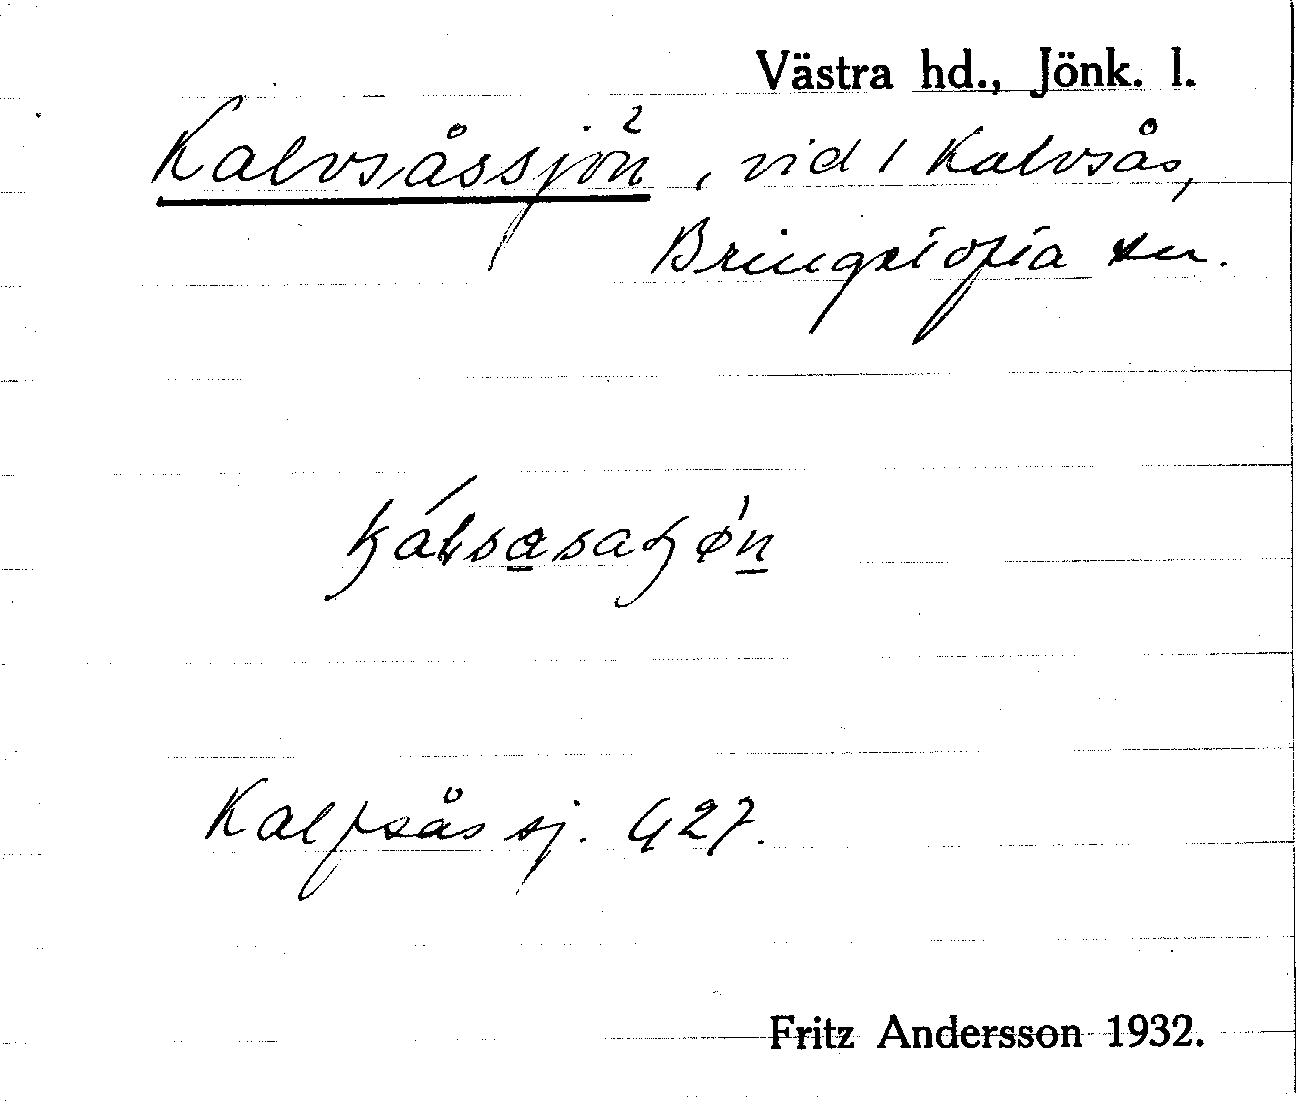 Västra hd., Jönk. l.
Kalvsåssjön², vid 1 Kalvsås,
Bringetofta sn.
Kalfsås sj. G27.
Fritz Andersson 1932.